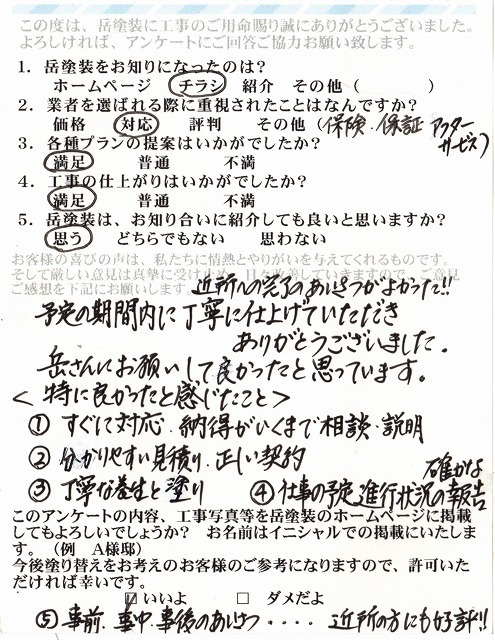 この度は、岳塗装に工事のご用命賜り誠にありがとうございました。
よろしければ、アンケートにご回答ご協力お願い致します。
1．岳塗装をお知りになったのは？
ホームページ　チラシ　紹介　その他（　　　　）
2．業者を選ばれる際に重視されたことはなんですか？
価格　対応　評判　その他（保険．保証 アフターサービス）
3．各種プランの提案はいかがでしたか？
満足　普通　不満
4．工事の仕上がりはいかがでしたか？
満足　普通　不満
5．岳塗装は、お知り合いに紹介しても良いと思いますか？
思う　どちらでもない　思わない
お客様の喜びの声は、私たちに情熱とやりがいを与えてくれるものです。
そして厳しい意見は真摯に受け止め、日々改善していきますので、ご意見
ご感想を下記にお願いします。
近所への完了のあいさつがよかった!!
予定の期間内に丁寧に仕上げていただき
ありがとうございました．
岳さんにお願いして良かったと思っています。
＜特に良かったと感じたこと＞
① すぐに対応．納得がいくまで相談・説明
② 分かりやすい見積り．正しい契約
③ 丁寧な養生と塗り　④ 仕事の予定進行状況の確かな報告
このアンケートの内容、工事写真等を岳塗装のホームページに掲載
してもよろしいでしょうか？　お名前はイニシャルでの掲載にいたしま
す。（例　A様邸）
今後塗り替えをお考えのお客様のご参考になりますので、許可いた
だければ幸いです。
☑ いいよ　□ ダメだよ
⑤ 事前．事中．事後のあいさつ・・・・ 近所の方にも好評!!